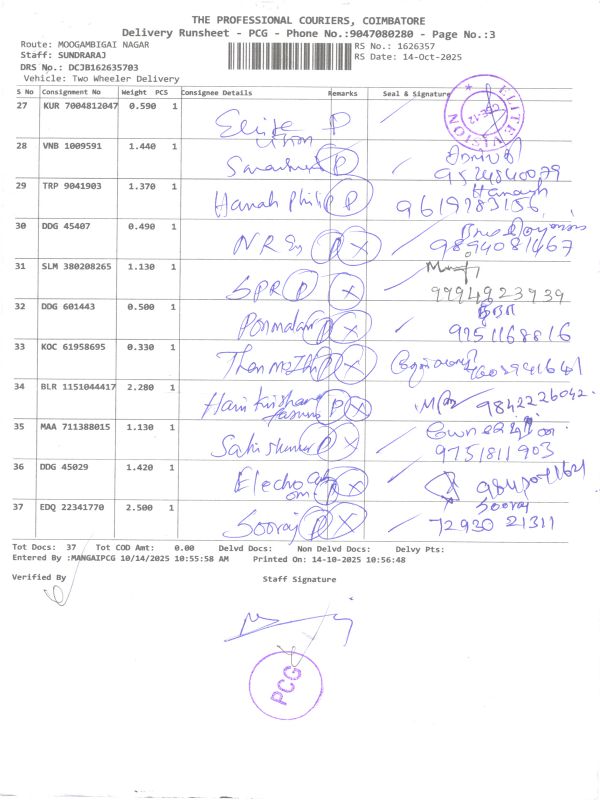 THE PROFESSIONAL COURIERS, COIMBATORE
Delivery Runsheet - PCG - Phone No.:9047080280 - Page No.:3
Route: MOOGAMBIGAI NAGAR
RS No.: 1626357
Staff: SUNDRARAJ
RS Date: 14-Oct-2025
DRS No.: DCJB162635703
Vehicle: Two Wheeler Delivery
S No Consignment No Weight PCS Consignee Details Remarks Seal & Signature
27 KUR 7004812047 0.590 1 Elite Vision P ELITE VISION CBE-12
28 VNB 1009591 1.440 1 P 9524840079
29 TRP 9041903 1.370 1 Hanah Philip P Hanah 9619783156
30 DDG 45407 0.490 1 P X 9894081467
31 SLM 380208265 1.130 1 SPR P X 9994923939
32 DDG 601443 0.500 1 Ponmalar P X 9751168816
33 KOC 61958695 0.330 1 P X
34 BLR 1151044417 2.280 1 P X 9842226042
35 MAA 711388015 1.130 1 P X 9751811903
36 DDG 45029 1.420 1 P X
37 EDQ 22341770 2.500 1 Sooraj P X Sooraj 72930 21311
Tot Docs: 37 Tot COD Amt: 0.00 Delvd Docs: Non Delvd Docs: Delvy Pts:
Entered By :MANGAIPCG 10/14/2025 10:55:58 AM Printed On: 14-10-2025 10:56:48
Verified By
Staff Signature
PCG